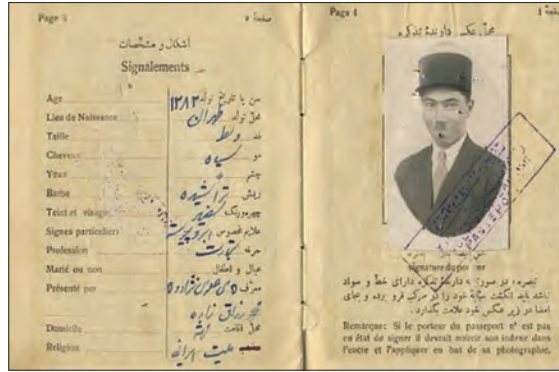 Page 5
صفحهٔ ۵
اشکال و مشخصات
Signalements
Age
سن یا تاریخ تولد ۱۲۸۳
Lieu de Naissance
محل تولد طهران
Taille
قد وسط
Cheveux
مو سیاه
Yeux
چشم
Barbe
ریش تراشیده
Teint et visage
سفید
Signes particuliers
علائم مخصوص
Profession
حرفه تجارت
Marié ou non
عیال و اطفال
Présenté par
معرف
Domicile
محل اقامت
Religion
ملیت ایرانی
Page 4
صفحهٔ ٤
محل عکس دارندهٔ تذکره
Signature du porteur
تبصره، در صورتیکه دارندهٔ تذکره دارای خط و سواد
باشد باید انگشت سبابهٔ خود را در مرکب فرو برده و بجای
امضا در زیر عکس خود علامت بگذارد.
Remarque: Si le porteur du passeport n'est pas
en état de signer il devrait noircir son indexe dans
l'encre et l'appliquer en bas de sa photographie.